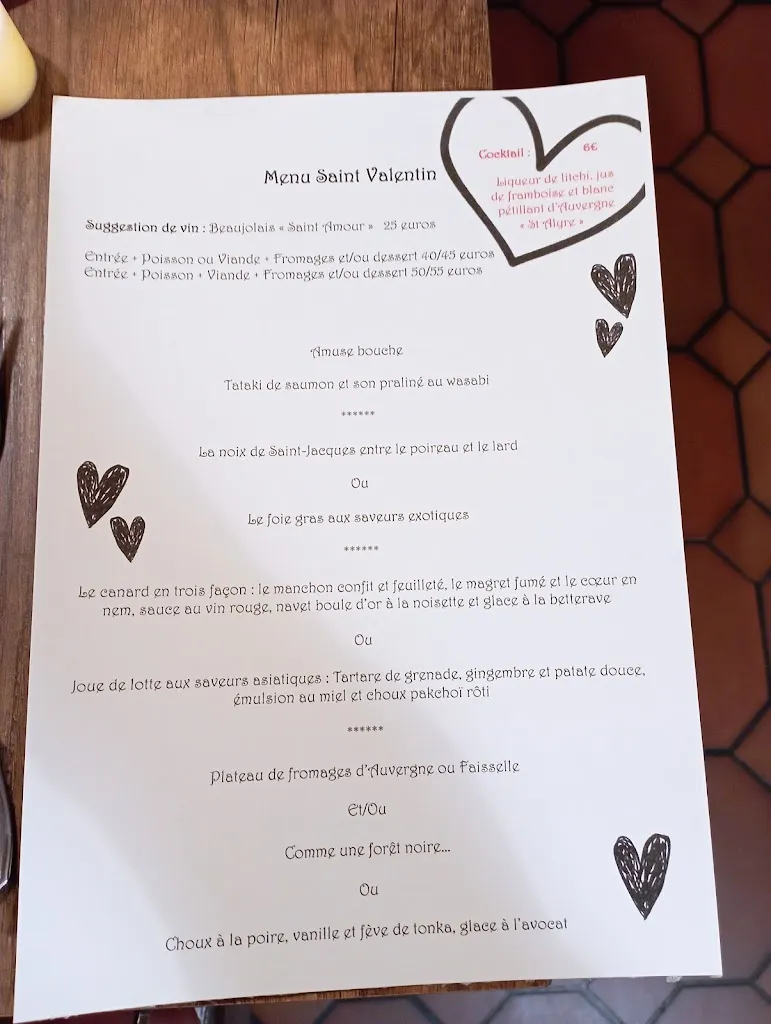 Menu Saint Valentin
Cocktail : 6€
Liqueur de litchi, jus
de framboise et blanc
pétillant d'Auvergne
« St Alyre »
Suggestion de vin : Beaujolais « Saint Amour » 25 euros
Entrée + Poisson ou Viande + Fromages et/ou dessert 40/45 euros
Entrée + Poisson + Viande + Fromages et/ou dessert 50/55 euros
Amuse bouche
Tataki de saumon et son praliné au wasabi
******
La noix de Saint-Jacques entre le poireau et le lard
Ou
Le foie gras aux saveurs exotiques
******
Le canard en trois façon : le manchon confit et feuilleté, le magret fumé et le cœur en
nem, sauce au vin rouge, navet boule d'or à la noisette et glace à la betterave
Ou
Joue de lotte aux saveurs asiatiques : Tartare de grenade, gingembre et patate douce,
émulsion au miel et choux pakchoï rôti
******
Plateau de fromages d'Auvergne ou Faisselle
Et/Ou
Comme une forêt noire...
Ou
Choux à la poire, vanille et fève de tonka, glace à l'avocat